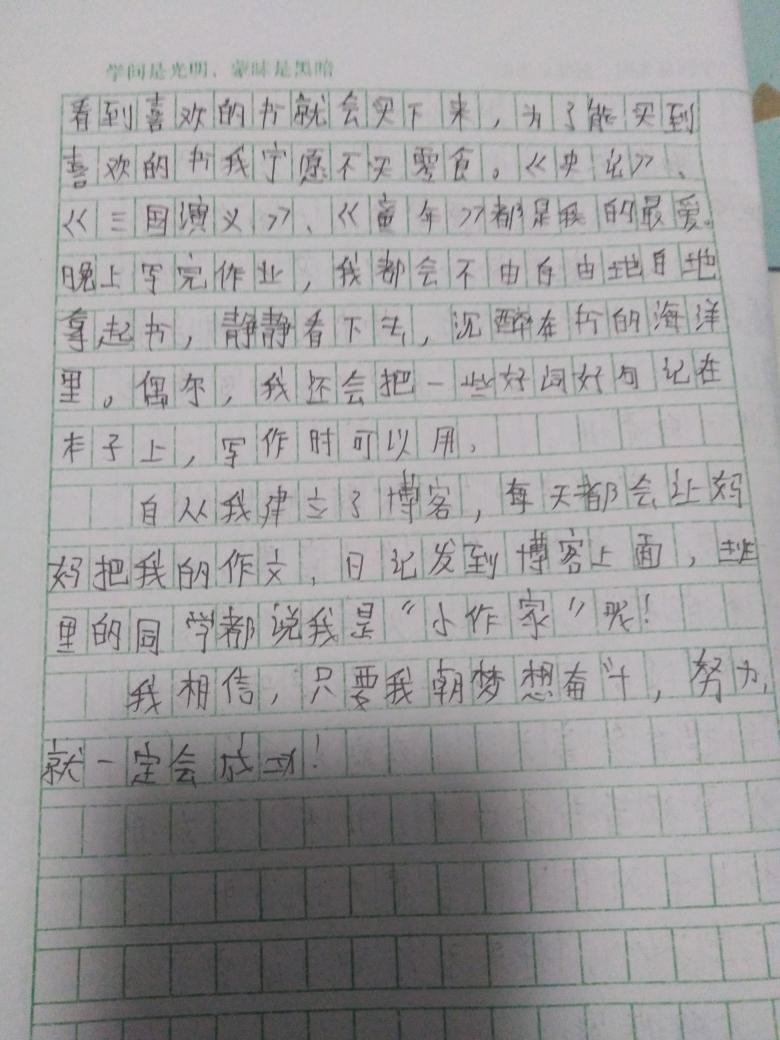 学问是光明，蒙昧是黑暗
看到喜欢的书就会买下来，为了能买到
喜欢的书我宁愿不买零食。《史记》、
《三国演义》、《童年》都是我的最爱。
晚上写完作业，我都会不由自由地自地
拿起书，静静看下去，沉醉在书的海洋
里。偶尔，我还会把一些好词好句记在
本子上，写作时可以用。
自从我建立了博客，每天都会让妈
妈把我的作文，日记发到博客上面，班
里的同学都说我是“小作家”呢！
我相信，只要我朝梦想奋斗，努力，
就一定会成功！